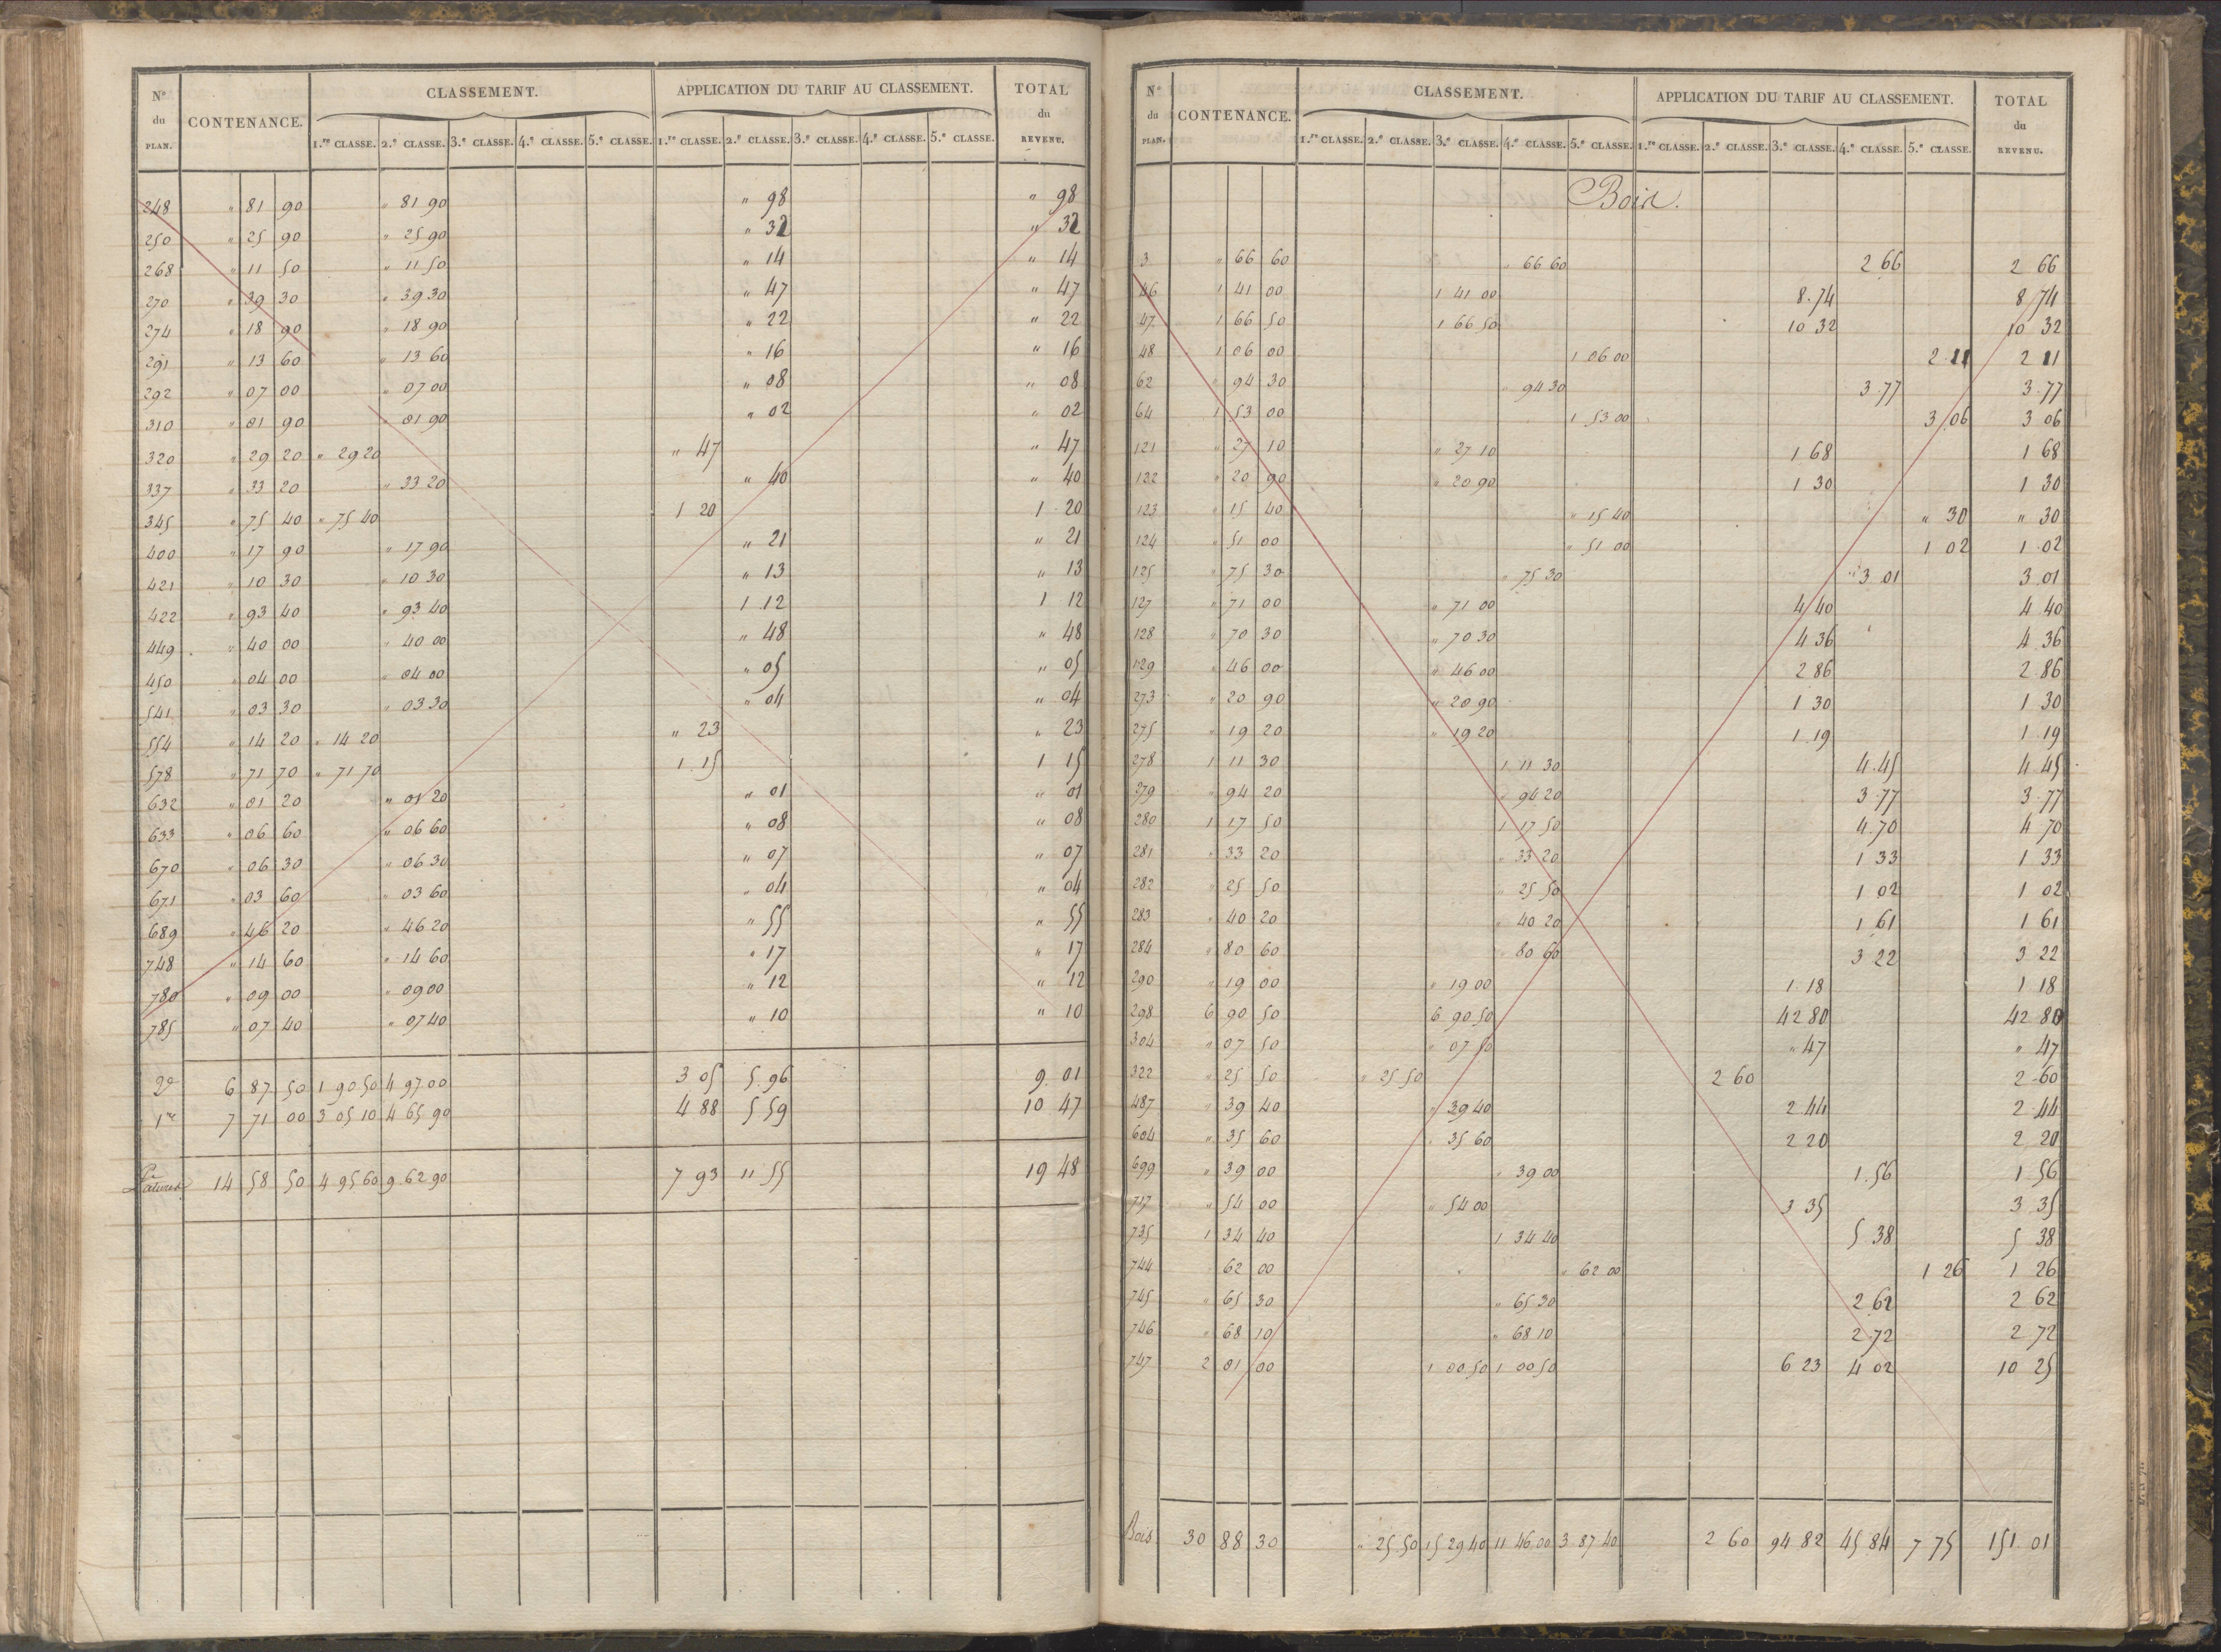 N.º du PLAN. CONTENANCE. CLASSEMENT. APPLICATION DU TARIF AU CLASSEMENT. TOTAL du REVENU.
1.re CLASSE. 2.e CLASSE. 3.e CLASSE. 4.e CLASSE. 5.e CLASSE. 1.re CLASSE. 2.e CLASSE. 3.e CLASSE. 4.e CLASSE. 5.e CLASSE.
248 " 81 90 " 81 90 " 98 " 98
250 " 25 90 " 25 90 " 32 " 32
268 " 11 50 " 11 50 " 14 " 14
270 " 39 30 " 39 30 " 47 " 47
274 " 18 90 " 18 90 " 22 " 22
291 " 13 60 " 13 60 " 16 " 16
292 " 07 00 " 07 00 " 08 " 08
310 " 01 90 " 01 90 " 02 " 02
320 " 29 20 " 29 20 " 47 " 47
337 " 33 20 " 33 20 " 40 " 40
345 " 75 40 " 75 40 1 20 1 20
400 " 17 90 " 17 90 " 21 " 21
421 " 10 30 " 10 30 " 13 " 13
422 " 93 40 " 93 40 1 12 1 12
449 " 40 00 " 40 00 " 48 " 48
450 " 04 00 " 04 00 " 05 " 05
541 " 03 30 " 03 30 " 04 " 04
554 " 14 20 " 14 20 " 23 " 23
578 " 71 70 " 71 70 1 15 1 15
632 " 01 20 " 01 20 " 01 " 01
633 " 06 60 " 06 60 " 08 " 08
670 " 06 30 " 06 30 " 07 " 07
671 " 03 60 " 03 60 " 04 " 04
689 " 46 20 " 46 20 " 55 " 55
748 " 14 60 " 14 60 " 17 " 17
780 " 09 00 " 09 00 " 12 " 12
785 " 07 40 " 07 40 " 10 " 10
2e 6 87 50 1 90 50 4 97 00 3 05 5 96 9 01
1re 7 71 00 3 05 10 4 65 90 4 88 5 59 10 47
Patures 14 58 50 4 95 60 9 62 90 7 93 11 55 19 48
N.º du PLAN. CONTENANCE. CLASSEMENT. APPLICATION DU TARIF AU CLASSEMENT. TOTAL du REVENU.
1.re CLASSE. 2.e CLASSE. 3.e CLASSE. 4.e CLASSE. 5.e CLASSE. 1.re CLASSE. 2.e CLASSE. 3.e CLASSE. 4.e CLASSE. 5.e CLASSE.
Bois.
3 " 66 60 " 66 60 2 66 2 66
46 1 41 00 1 41 00 8 74 8 74
47 1 66 50 1 66 50 10 32 10 32
48 1 06 00 1 06 00 2 11 2 11
62 " 94 30 " 94 30 3 77 3 77
64 1 53 00 1 53 00 3 06 3 06
121 " 27 10 " 27 10 1 68 1 68
122 " 20 90 " 20 90 1 30 1 30
123 " 15 40 " 15 40 " 30 " 30
124 " 51 00 " 51 00 1 02 1 02
125 " 75 30 " 75 30 3 01 3 01
127 " 71 00 " 71 00 4 40 4 40
128 " 70 30 " 70 30 4 36 4 36
129 " 46 00 " 46 00 2 86 2 86
273 " 20 90 " 20 90 1 30 1 30
275 " 19 20 " 19 20 1 19 1 19
278 1 11 30 1 11 30 4 45 4 45
279 " 94 20 " 94 20 3 77 3 77
280 1 17 50 1 17 50 4 70 4 70
281 " 33 20 " 33 20 1 33 1 33
282 " 25 50 " 25 50 1 02 1 02
283 " 40 20 " 40 20 1 61 1 61
284 " 80 60 " 80 60 3 22 3 22
290 " 19 00 " 19 00 1 18 1 18
298 6 90 50 6 90 50 42 80 42 80
304 " 07 50 " 07 50 " 47 " 47
322 " 25 50 " 25 50 2 60 2 60
487 " 39 40 " 39 40 2 44 2 44
604 " 35 60 " 35 60 2 20 2 20
699 " 39 00 " 39 00 1 56 1 56
717 " 54 00 " 54 00 3 35 3 35
735 1 34 40 1 34 40 5 38 5 38
744 62 00 " 62 00 1 26 1 26
745 " 65 30 " 65 30 2 62 2 62
746 " 68 10 " 68 10 2 72 2 72
747 2 01 00 1 00 50 1 00 50 6 23 4 02 10 25
Bois 30 88 30 " 25 50 15 29 40 11 46 00 3 87 40 2 60 94 82 45 84 7 75 151 01